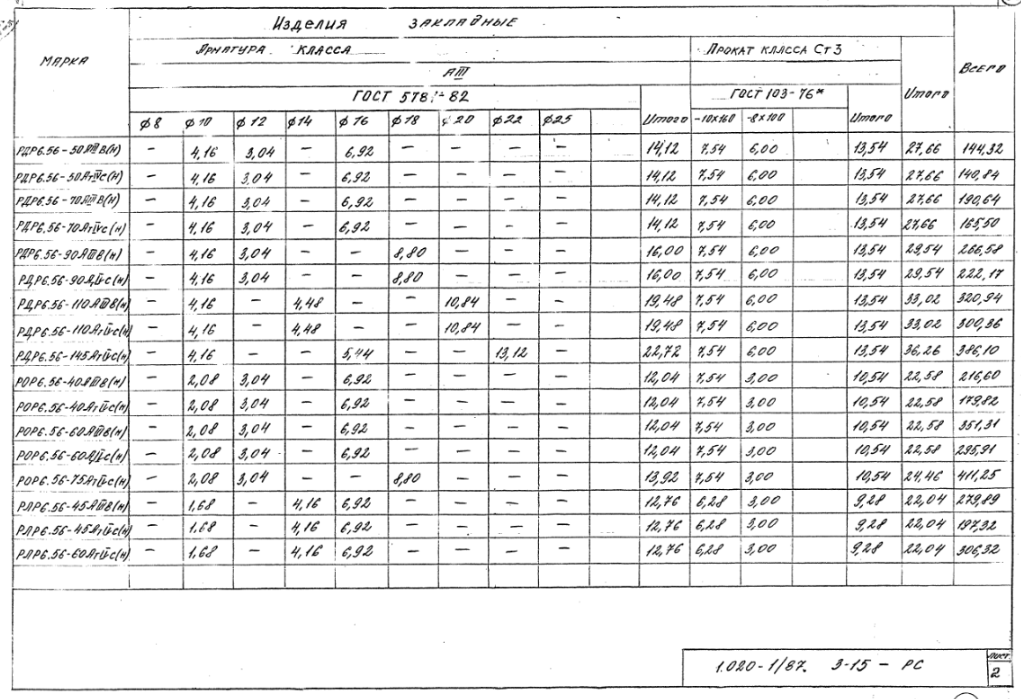 Изделия закладные
МАРКА Арматура класса Прокат класса Ст3 Итого Всего
АIII
ГОСТ 5781-82 ГОСТ 103-76*
ø8 ø10 ø12 ø14 ø16 ø18 ø20 ø22 ø25 Итого -10х160 -8х100 Итого
РДР6.56-50АIIIВ(н) — 4,16 3,04 — 6,92 — — — — 14,12 7,54 6,00 13,54 27,66 144,32
РДР6.56-50АтIVС(н) — 4,16 3,04 — 6,92 — — — — 14,12 7,54 6,00 13,54 27,66 140,84
РДР6.56-70АIIIВ(н) — 4,16 3,04 — 6,92 — — — — 14,12 7,54 6,00 13,54 27,66 190,64
РДР6.56-70АтIVС(н) — 4,16 3,04 — 6,92 — — — — 14,12 7,54 6,00 13,54 27,66 165,50
РДР6.56-90АIIIВ(н) — 4,16 3,04 — — 8,80 — — — 16,00 7,54 6,00 13,54 29,54 266,58
РДР6.56-90АтIVС(н) — 4,16 3,04 — — 8,80 — — — 16,00 7,54 6,00 13,54 29,54 222,17
РДР6.56-110АIIIВ(н) — 4,16 — 4,48 — — 10,84 — — 19,48 7,54 6,00 13,54 33,02 320,94
РДР6.56-110АтIVС(н) — 4,16 — 4,48 — — 10,84 — — 19,48 7,54 6,00 13,54 33,02 300,36
РДР6.56-145АтIVС(н) — 4,16 — — 5,44 — — 13,12 — 22,72 7,54 6,00 13,54 36,26 386,10
РОР6.56-40АIIIВ(н) — 2,08 3,04 — 6,92 — — — — 12,04 7,54 3,00 10,54 22,58 216,60
РОР6.56-40АтIVС(н) — 2,08 3,04 — 6,92 — — — — 12,04 7,54 3,00 10,54 22,58 179,82
РОР6.56-60АIIIВ(н) — 2,08 3,04 — 6,92 — — — — 12,04 7,54 3,00 10,54 22,58 351,31
РОР6.56-60АтIVС(н) — 2,08 3,04 — 6,92 — — — — 12,04 7,54 3,00 10,54 22,58 295,91
РОР6.56-75АтIVС(н) — 2,08 3,04 — — 8,80 — — — 13,92 7,54 3,00 10,54 24,46 411,25
РЛР6.56-45АIIIВ(н) — 1,68 — 4,16 6,92 — — — — 12,76 6,28 3,00 9,28 22,04 279,89
РЛР6.56-45АтIVС(н) — 1,68 — 4,16 6,92 — — — — 12,76 6,28 3,00 9,28 22,04 197,32
РЛР6.56-60АтIVС(н) — 1,68 — 4,16 6,92 — — — — 12,76 6,28 3,00 9,28 22,04 306,32
1.020-1/87. 3-15 - РС
Лист
2